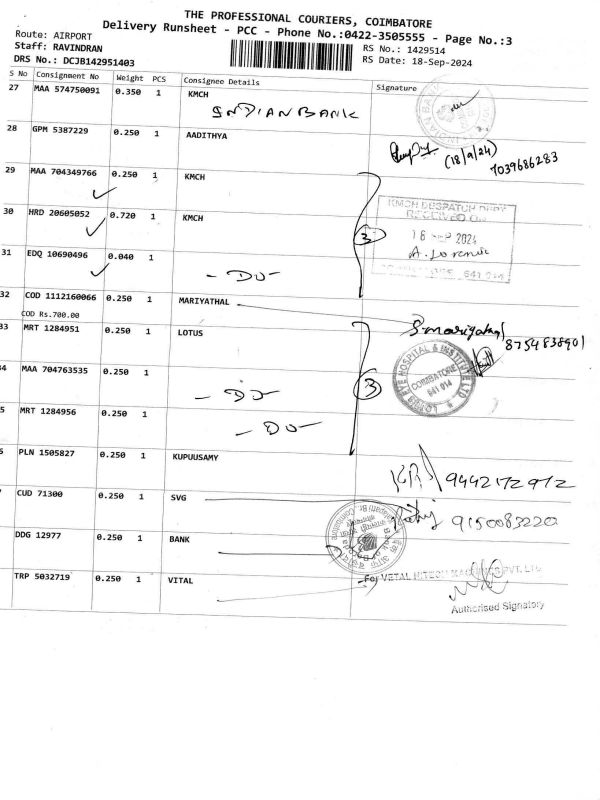 THE PROFESSIONAL COURIERS, COIMBATORE
Delivery Runsheet - PCC - Phone No.:0422-3505555 - Page No.:3
Route: AIRPORT
RS No.: 1429514
Staff: RAVINDRAN
RS Date: 18-Sep-2024
DRS No.: DCJB142951403
S No Consignment No Weight PCS Consignee Details Signature
27 MAA 574750091 0.350 1 KMCH
INDIAN BANK
28 GPM 5387229 0.250 1 AADITHYA
(18/9/24)
7039686283
29 MAA 704349766 0.250 1 KMCH
KMCH DESPATCH
RECEIVED ON
30 HRD 20605052 0.720 1 KMCH
3
18 SEP 2024
31 EDQ 10690496 0.040 1
- DO -
641 014
32 COD 1112160066 0.250 1 MARIYATHAL
COD Rs.700.00
S.mariyathal
8754838901
33 MRT 1284951 0.250 1 LOTUS
LOTUS EYE HOSPITAL & INSTITUTE LTD
COIMBATORE
641 014
4 MAA 704763535 0.250 1
- DO -
3
5 MRT 1284956 0.250 1
- DO -
6 PLN 1505827 0.250 1 KUPUUSAMY
9442172972
CUD 71300 0.250 1 SVG
9150083220
DDG 12977 0.250 1 BANK
TRP 5032719 0.250 1 VITAL
For VETAL HITECH MACHINES PVT. LTD
Authorised Signatory